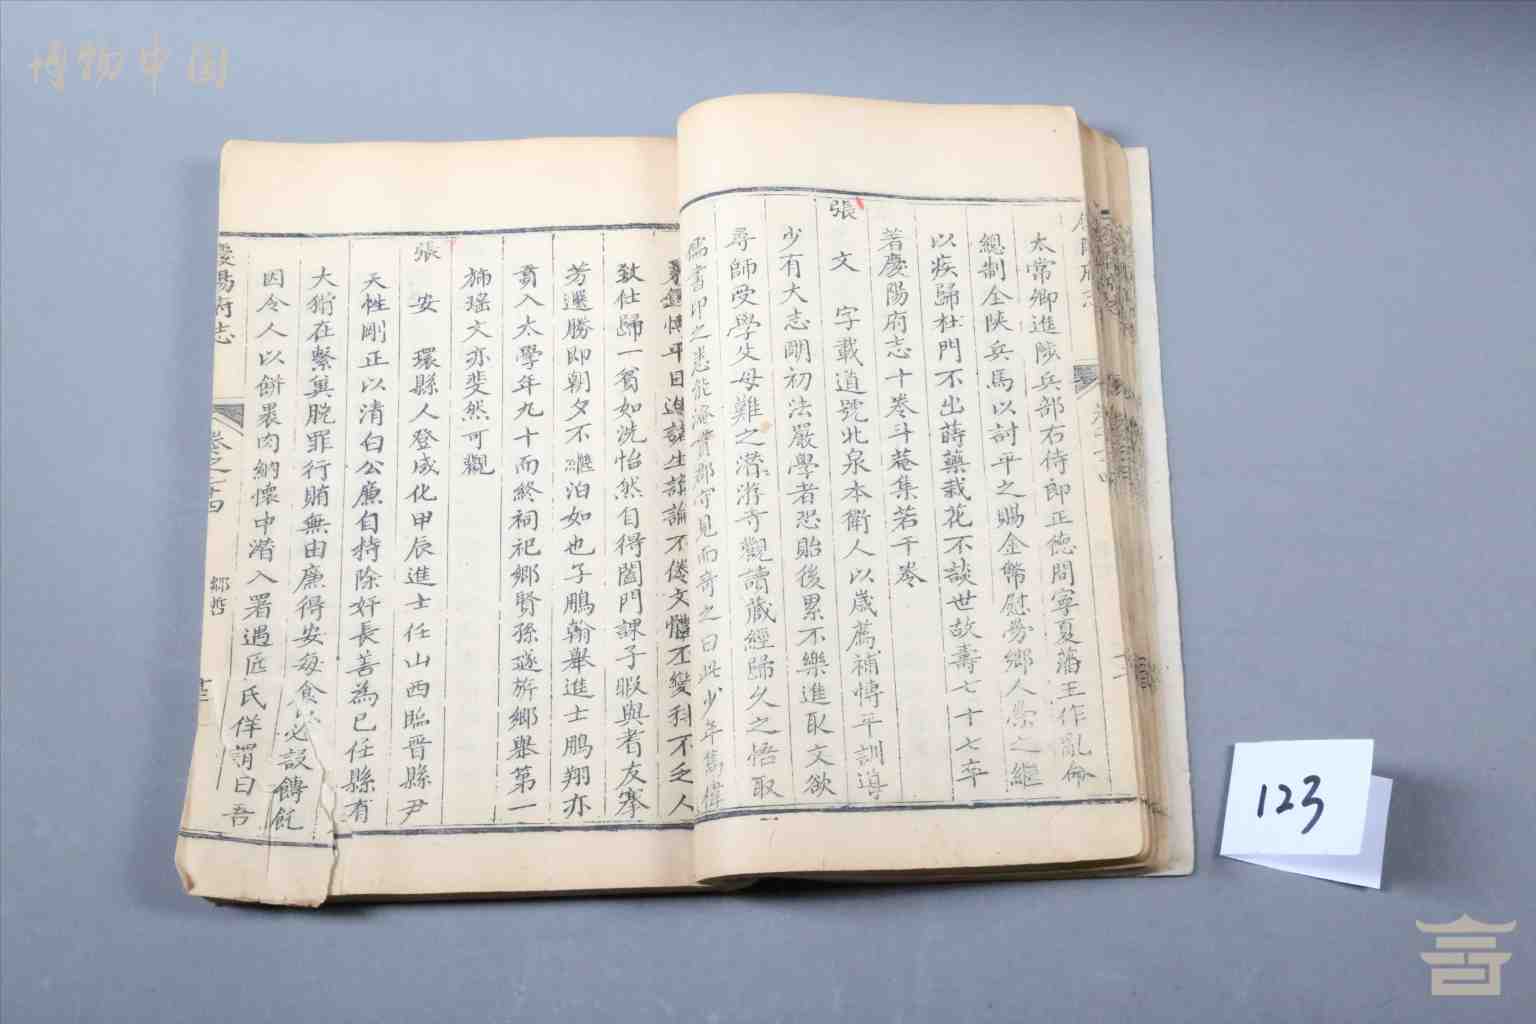 博物中国
太常卿進陞兵部右侍郎正德間寧夏藩王作亂命
總制全陝兵馬以討平之賜金幣慰勞鄉人榮之繼
以疾歸杜門不出蒔藥栽花不談世故壽七十七卒
著慶陽府志十卷斗菴集若干卷
張文字載道號北泉本衛人以歲薦補慱平訓導
少有大志剛初法嚴學者恐貽後累不樂進取文欲
尋師受學父母難之潛游寺觀讀藏經歸久之悟取
儒書印之悉能 郡守見而奇之曰此少年雋偉
慱平日進諸生講論不倦文體丕變科不乏人
致仕歸一貧如洗怡然自得闔門課子暇與耆友搴
芳選勝即朝夕不繼泊如也子鵬翰舉進士鵬翔亦
貢入太學年九十而終祠祀鄉賢孫遜旂鄉舉第一
旆瑤文亦斐然可觀
張安環縣人登成化甲辰進士任山西臨晉縣尹
天性剛正以清白公廉自持除奸長善為已任縣有
大猾在繫兾脫罪行賄無由廉得安每食必設餺飥
因令人以餅褁肉納懷中潛入署遇庄氏佯謂曰吾
慶陽府志
卷之十四
鄉哲
十三
123